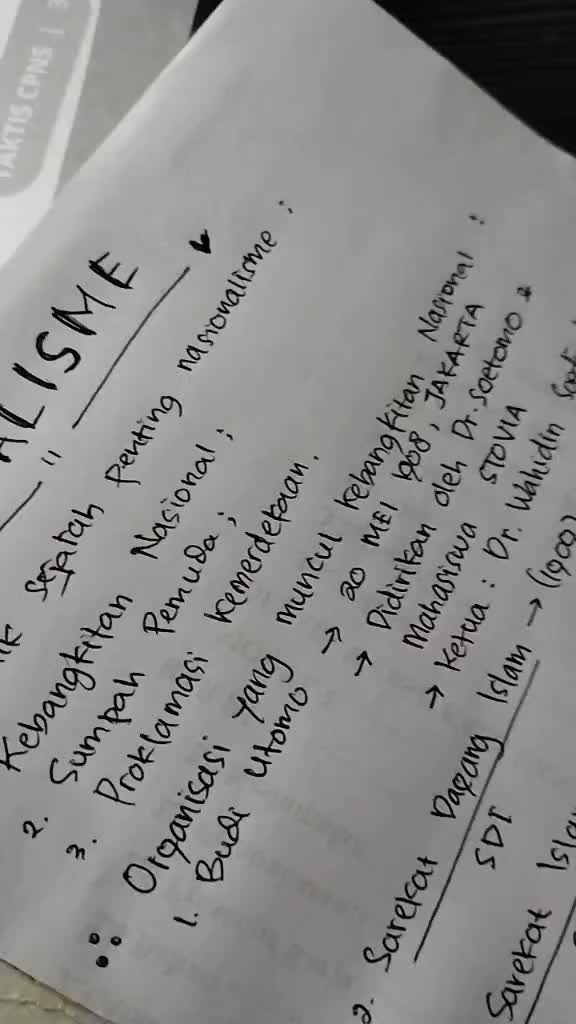 TAKTIS CPNS | 3
ALISME
sejarah penting nasionalisme :
Kebangkitan Nasional ;
2. Sumpah Pemuda ;
3. Proklamasi kemerdekaan.
Organisasi yang muncul kebangkitan Nasional :
1. Budi Utomo → 20 MEI 1908, JAKARTA
→ Didirikan oleh Dr. Soetomo &
Mahasiswa STOVIA
→ Ketua : Dr. Wahidin
2. Sarekat Dagang Islam → (1909)
SDI
Sarekat Isla